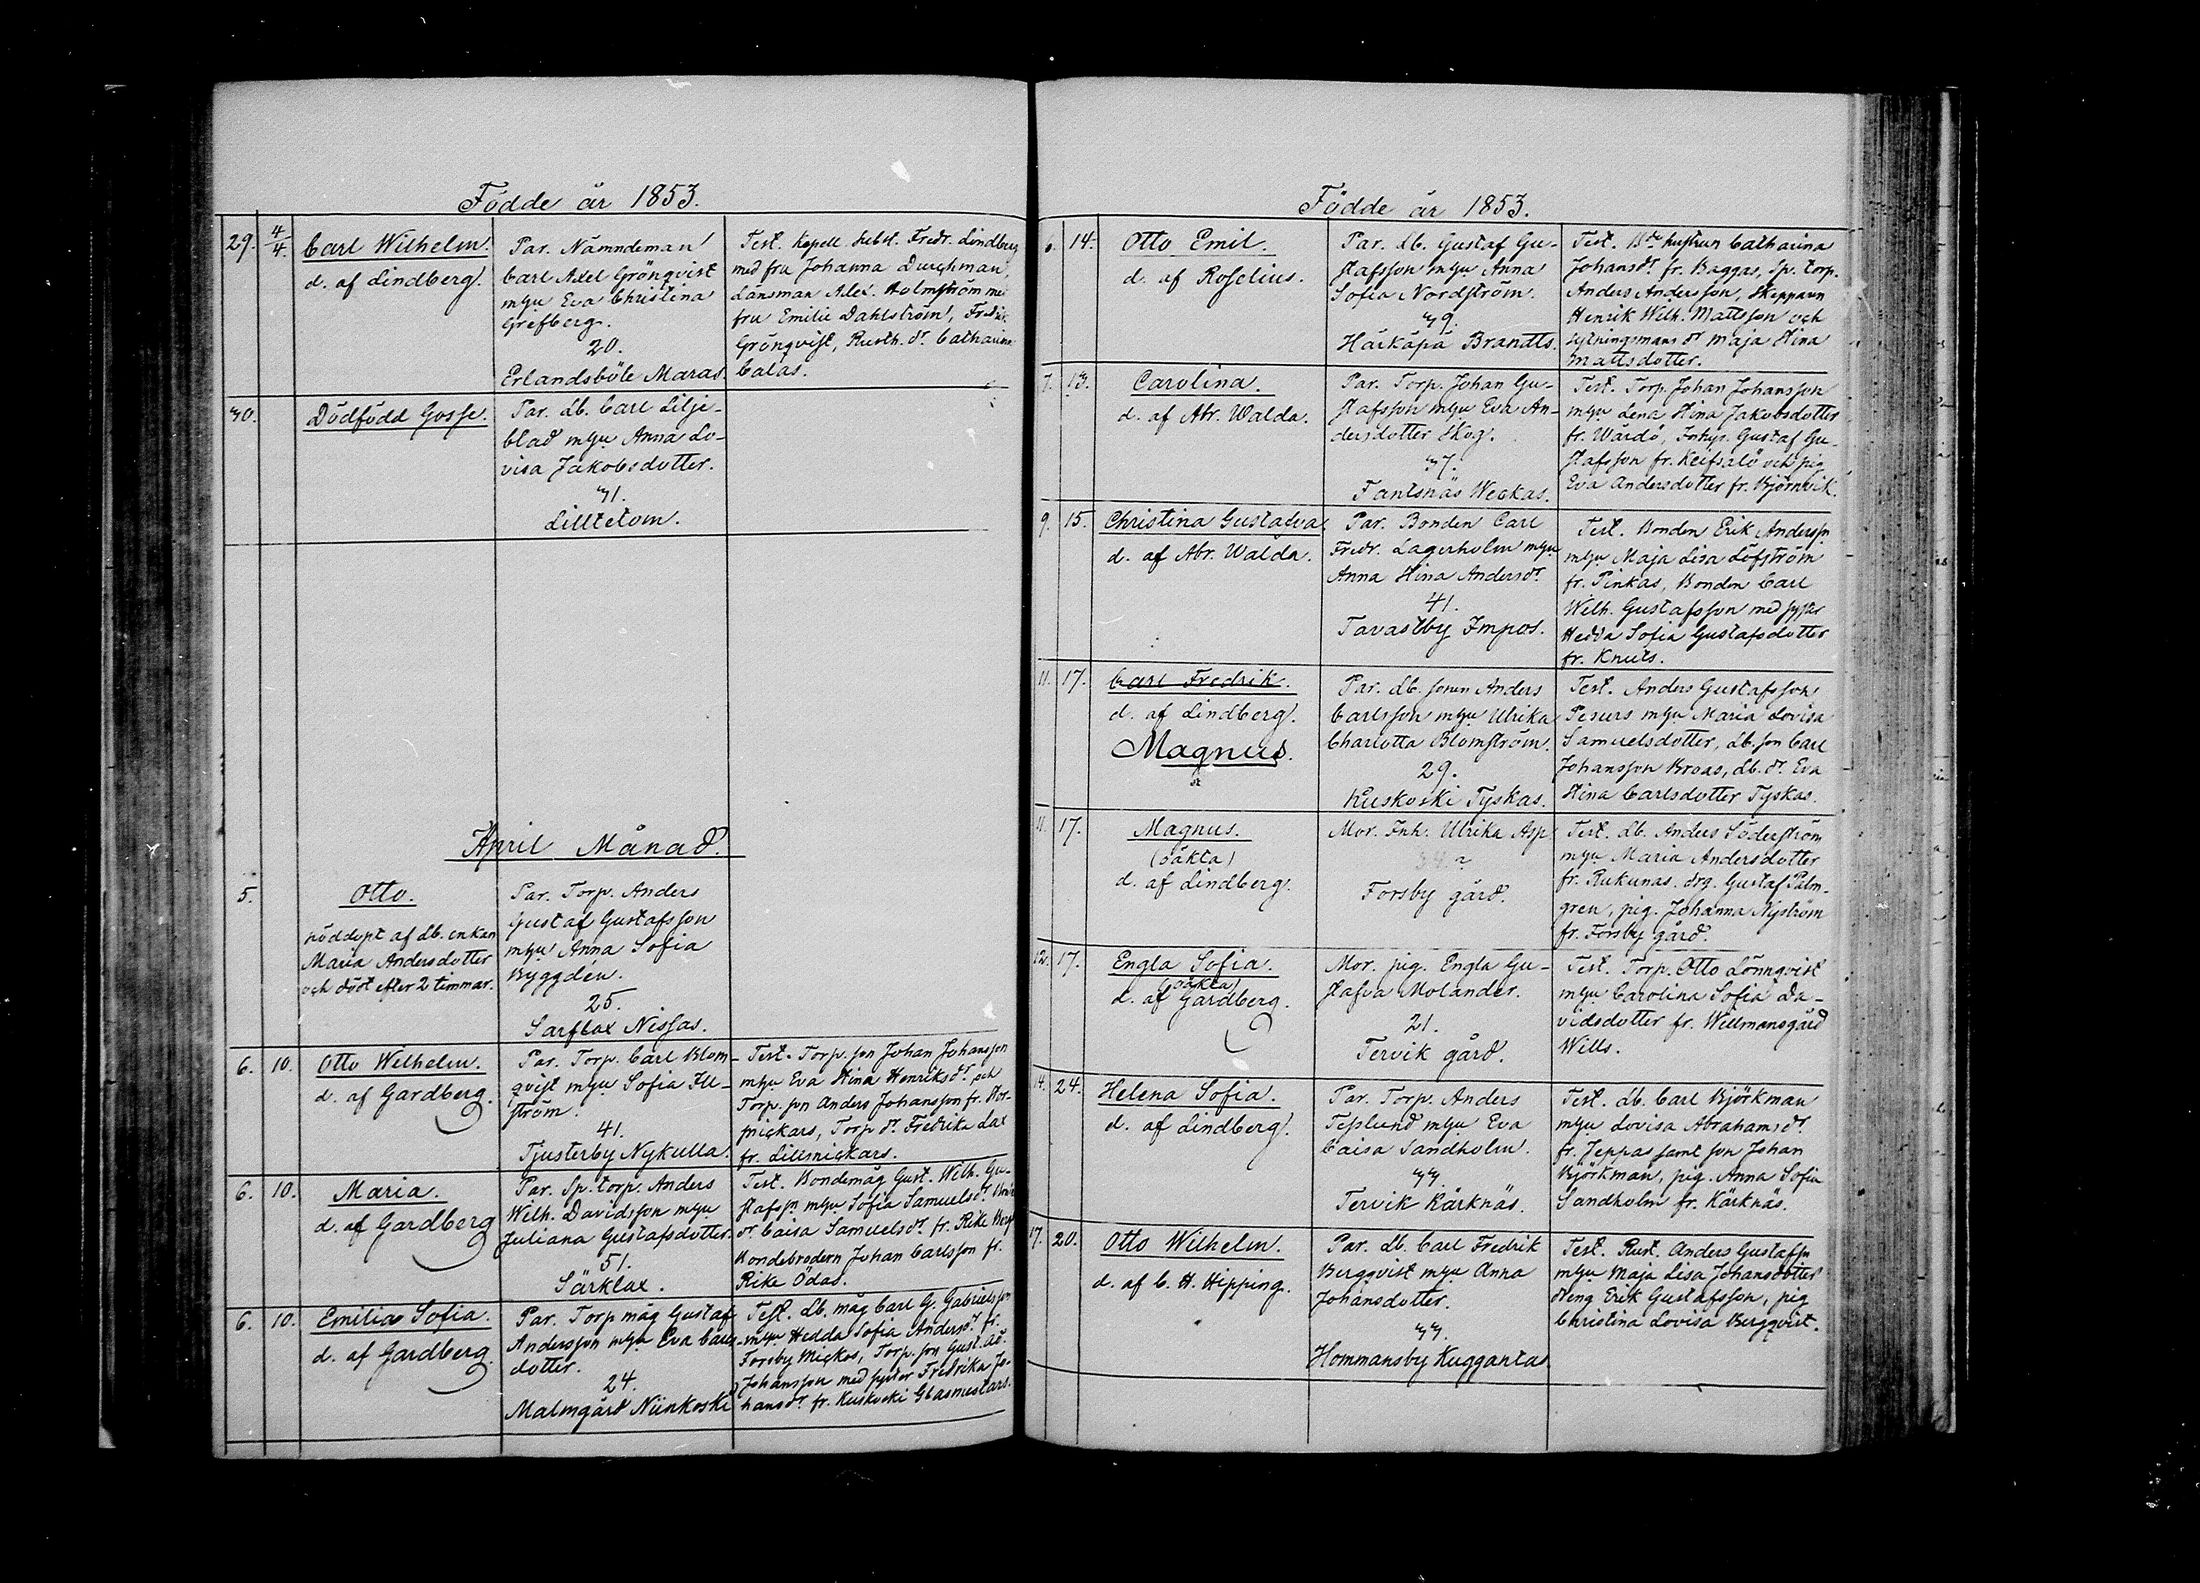 Födde år 1853.
29. 4/4. Carl Wilhelm.
d. af Lindberg.
Par. Nämndeman
Carl Axel Grönqvist
mhu Eva Christina
Grefberg.
20.
Erlandsböle Maras.
Test. Kapell. subst. Fredr. Lindberg
med fru Johanna Durchman,
Länsman Alex. Holmström med
fru Emilie Dahlström, Fredrik
Grönqvist, Rusth. dr Catharina
Calas.
30. Dödfödd Gosse.
Par. Lb. Carl Lilje-
blad mhu Anna Lo-
visa Jakobsdotter.
31.
Lilltetom.
April Månad.
5. Otto.
nöddöpt af Lb. enkan
Maria Andersdotter
och död efter 2 timmar.
Par. Torp. Anders
Gustaf Gustafsson
mhu Anna Sofia
Byggdén.
25.
Sarflax Nissas.
6. 10. Otto Wilhelm.
d. af Gardberg.
Par. Torp. Carl Blom-
qvist mhu Sofia Ill-
ström.
41.
Tjusterby Nykulla.
Test. Torp. son Johan Johansson
mhu Eva Stina Henriksdr och
Torp. son Anders Johansson fr. Stor-
mickars, Torp dr Fredrika Lax
fr. Lillmickars.
6. 10. Maria.
d. af Gardberg
Par. Sp. torp. Anders
Wilh. Davidsson mhu
Juliana Gustafsdotter.
51.
Särklax.
Test. Bondemåg Gust. Wilh. Gu-
stafssn mhu Sofia Samuelsdr
dr Caisa Samuelsdr fr. Rike
Bondebrodern Johan Carlsson fr.
Rike Ödas.
6. 10. Emilia Sofia.
d. af Gardberg.
Par. Torp måg Gustaf
Andersson mhu Eva Carls-
dotter.
24.
Malmgård Niinkoski
Test. Lb. måg Carl G. Gabrielsson
mhu Hedda Sofia Andersdr fr.
Forsby Mickos, Torp. son Gust. Ad.
Johansson med syster Fredrika Jo-
hansdr fr. Kuskoski Glasmestars.
Födde år 1853.
6. 14. Otto Emil.
d. af Roselius.
Par. Lb. Gustaf Gu-
stafsson mhu Anna
Sofia Nordström.
39.
Härkäpä Brandts.
Test. Bde hustrun Catharina
Johansdr fr. Baggas, Sp. torp.
Anders Andersson, Skepparn
Henrik Wilh. Mattsson och
sytningsmans dr Maja Stina
Mattsdotter.
7. 13. Carolina.
d. af Abr. Walda.
Par. Torp. Johan Gu-
stafsson mhu Eva An-
dersdotter Skog.
37.
Fantsnäs Weckas.
Test. Torp. Johan Johansson
mhu Lena Stina Jakobsdotter
fr. Wårdö, Inhys. Gustaf Gu-
stafsson fr. Keifsalö och pig.
Eva Andersdotter fr. Björnvik.
9. 15. Christina Gustafva.
d. af Abr. Walda.
Par. Bonden Carl
Fredr. Lagerholm mhu
Anna Stina Andersdr
41.
Tavastby Impos.
Test. Bonden Erik Anderssn
mhu Maja Lisa Löfström
fr. Pinkas, Bonden Carl
Wilh. Gustafsson med syster
Hedda Sofia Gustafsdotter
fr. Knuts.
11. 17. Carl Fredrik.
d. af Lindberg.
Magnus.
Par. Lb. sonen Anders
Carlsson mhu Ulrika
Charlotta Blomström.
29.
Kuskoski Tyskas.
Test. Anders Gustafsson
Pesurs mhu Maria Lovisa
Samuelsdotter, Lb. son Carl
Johansson Broas, Lb. dr Eva
Stina Carlsdotter Tyskas.
11. 17. Magnus.
(oäkta)
d. af Lindberg.
Mor. Inh. Ulrika Asp
Forsby gård.
Test. Lb. Anders Söderström
mhu Maria Andersdotter
fr. Rukunas. drg. Gustaf Palm-
gren, pig. Johanna Nyström
fr. Forsby gård.
12. 17. Engla Sofia.
(oäkta)
d. af Gardberg.
Mor. pig. Engla Gu-
stafva Molander.
21.
Tervik gård.
Test. Torp. Otto Lönnqvist
mhu Carolina Sofia Da-
vidsdotter fr. Willmansgård
Wills.
14. 24. Helena Sofia.
d. af Lindberg.
Par. Torp. Anders
Teslund mhu Eva
Caisa Sandholm.
33.
Tervik Kärknäs.
Test. Lb. Carl Björkman
mhu Lovisa Abrahamsdr
fr. Jeppas samt son Johan
Björkman, pig. Anna Sofia
Sandholm fr. Kärknäs.
17. 20. Otto Wilhelm.
d. af C. H. Hipping.
Par. Lb. Carl Fredrik
Bergqvist mhu Anna
Johansdotter.
33.
Hommansby Kuggantas
Test. Rust. Anders Gustafssn
mhu Maja Lisa Johansdotter
dreng Erik Gustafsson, pig
Christina Lovisa Bergqvist.